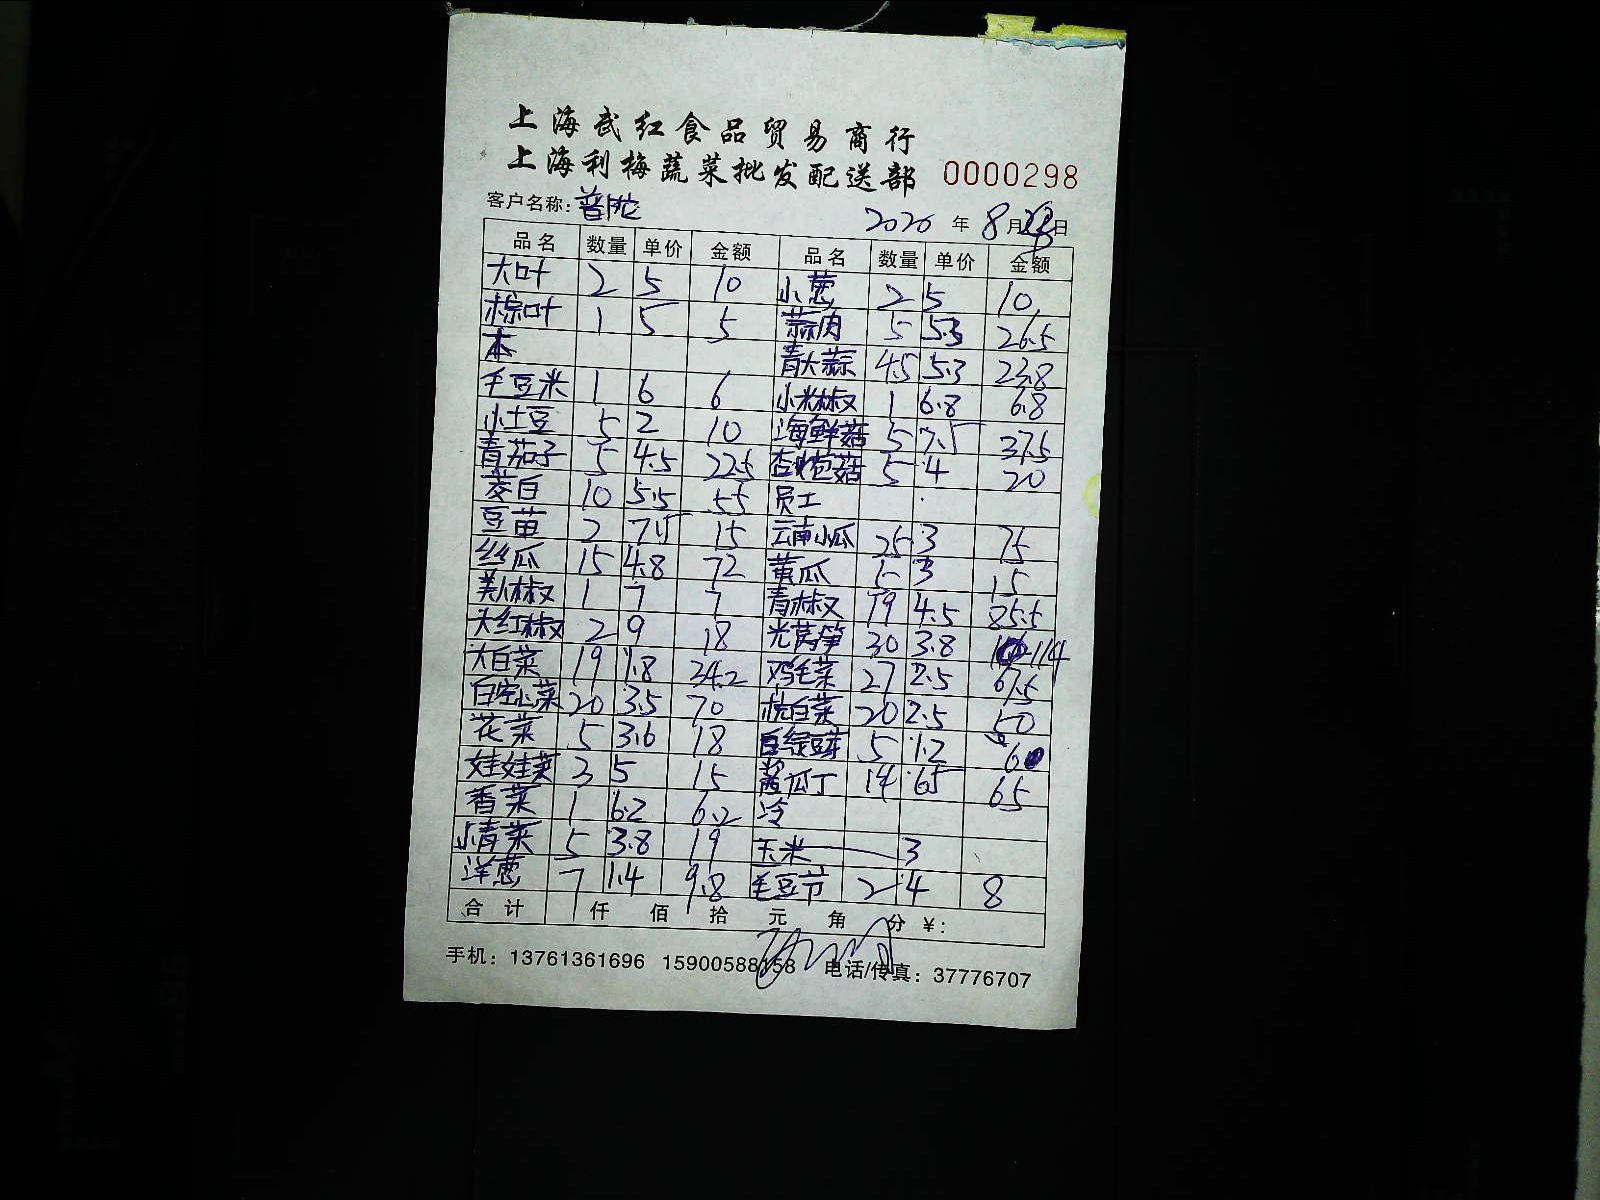 上海武红食品贸易商行
上海利梅蔬菜批发配送部 0000298
客户名称：普陀 2020 年 8 月 日
品名 数量 单价 金额 品名 数量 单价 金额
大叶 2 5 10 小葱 2 5 10
棕叶 1 5 5 蒜肉 5 5.3 26.5
本 青大蒜 4.5 5.3 23.8
毛豆米 1 6 6 小米椒 1 6.8 6.8
小土豆 5 2 10 海鲜菇 5 7.5 37.5
青茄子 5 4.5 22.5 杏鲍菇 5 4 20
茭白 10 5.5 55 员工
豆苗 2 7.5 15 云南小瓜 25 3 75
丝瓜 15 4.8 72 黄瓜 5 3 15
美人椒 1 7 7 青椒 19 4.5 85.5
大红椒 2 9 18 光莴笋 30 3.8 114
大白菜 19 1.8 34.2 鸡毛菜 27 2.5 67.5
白空心菜 20 3.5 70 杭白菜 20 2.5 50
花菜 5 3.6 18 绿豆芽 5 1.2 6
娃娃菜 3 5 15 酱瓜丁 14 65 65
香菜 1 6.2 6.2 冷
小青菜 5 3.8 19 玉米 3
洋葱 7 1.4 9.8 毛豆节 2 4 8
合计 仟 佰 拾 元 角 分 ￥：
手机：13761361696 15900588158 电话/传真：37776707